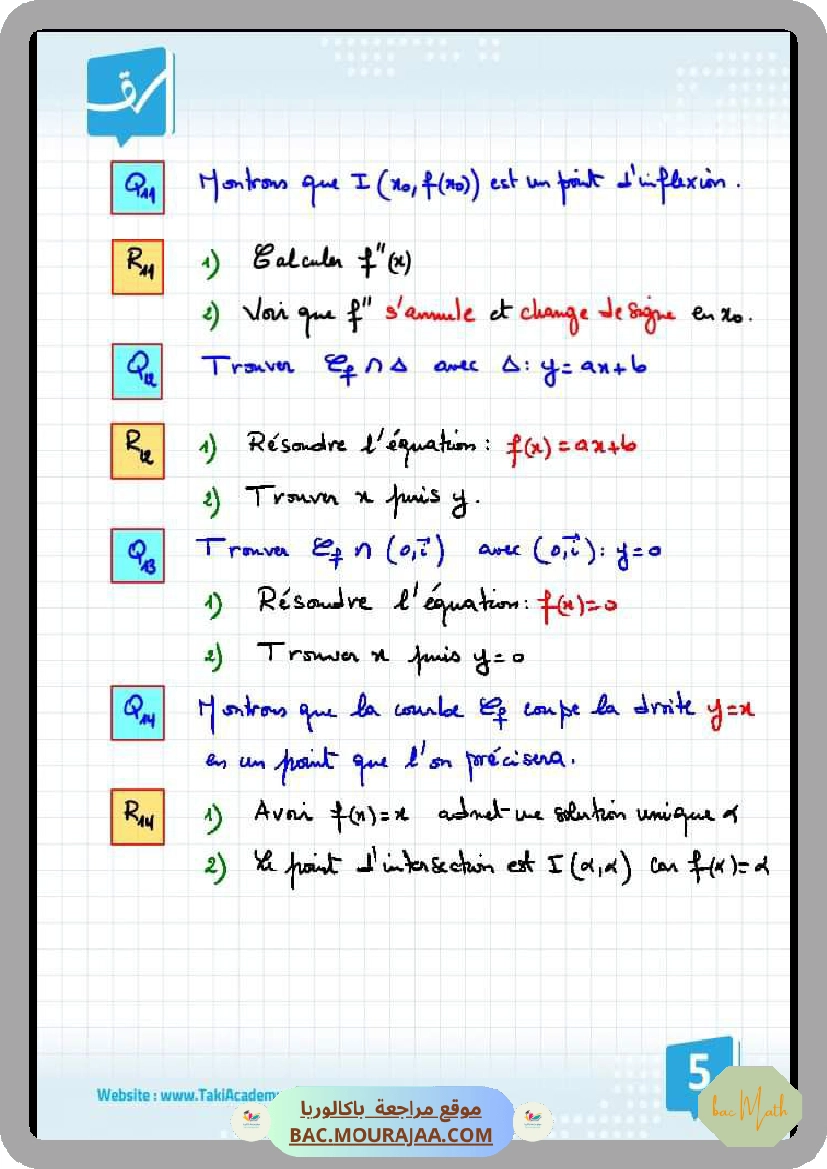 Q11 Montrons que I (x₀, f(x₀)) est un point d'inflexion.
R11 1) Calculer f"(x)
2) Voir que f" s'annule et change de signe en x₀.
Q12 Trouver 𝒞f ∩ Δ avec Δ: y = ax+b
R12 1) Résoudre l'équation: f(x) = ax+b
2) Trouver x puis y.
Q13 Trouver 𝒞f ∩ (0,i⃗) avec (0,i⃗): y=0
1) Résoudre l'équation: f(x)=0
2) Trouver x puis y=0
Q14 Montrons que la courbe 𝒞f coupe la droite y=x
en un point que l'on précisera.
R14 1) Avoir f(x)=x admet une solution unique α
2) Le point d'intersection est I (α,α) car f(α)=α
5
Website : www.TakiAcadem
موقع مراجعة باكالوريا
BAC.MOURAJAA.COM
bac Math